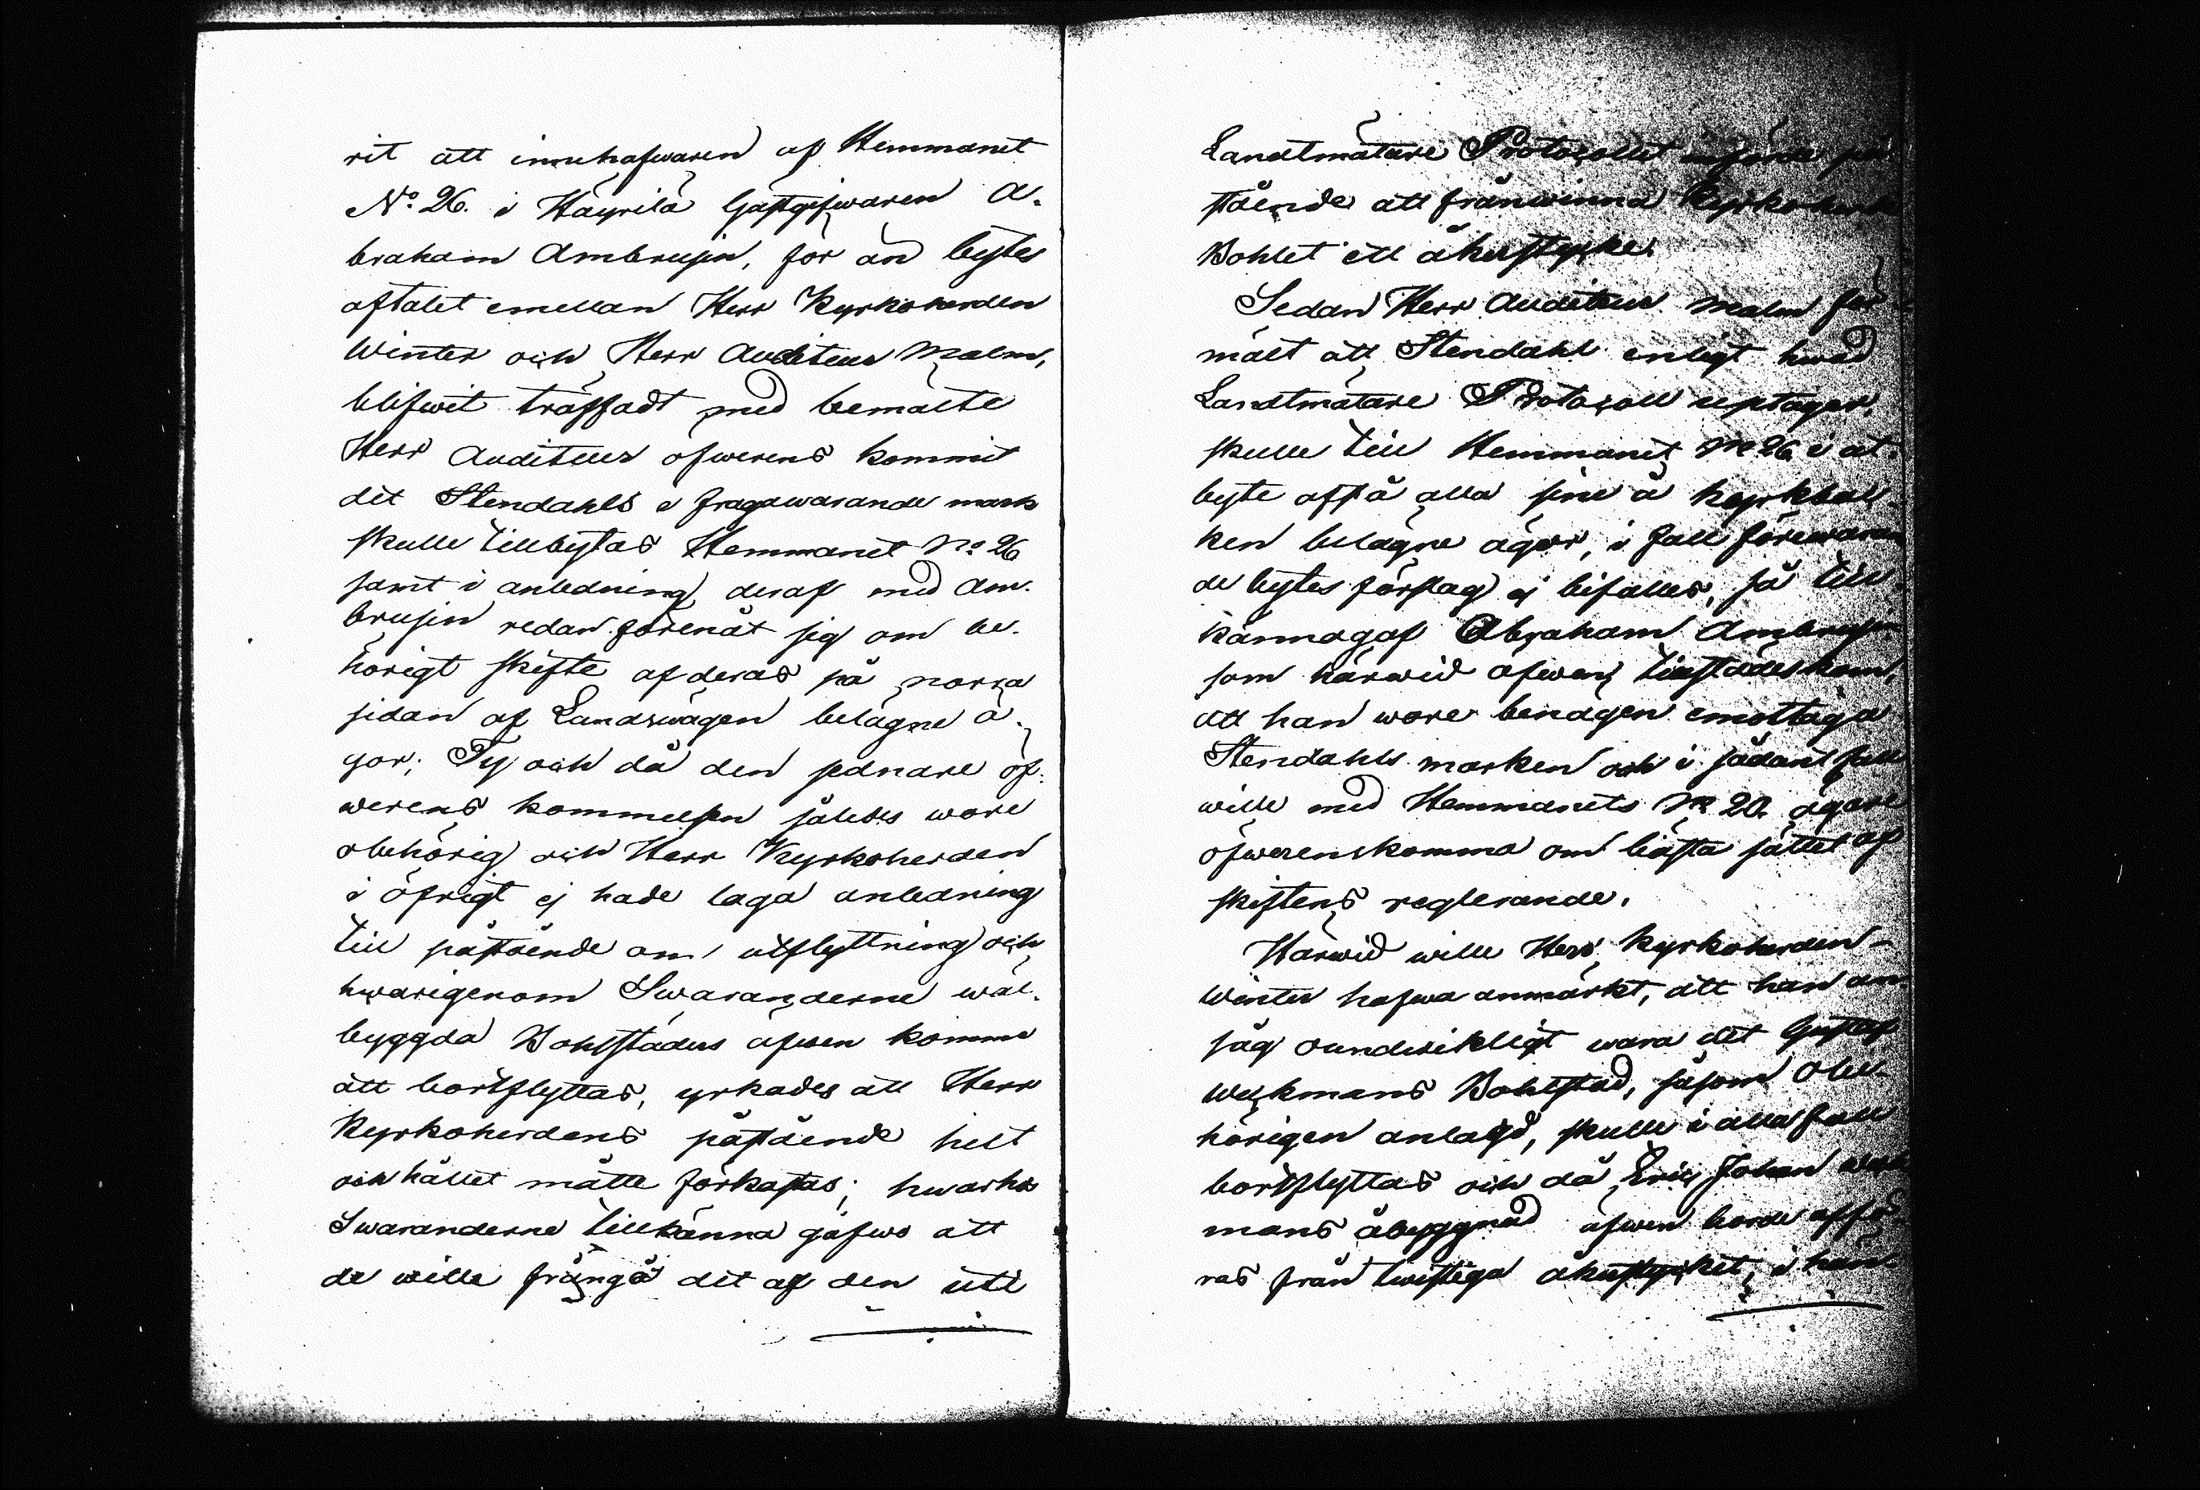 rit att innehafwaren af Hemmanet
No. 26. i Häyrilä Gästgifwaren A-
braham Ambrusin, för än bytes
aftalet emellan Herr Kyrkoherden
Winter och Herr Auditeur Malm,
blifwit träffadt med bemälte
Herr Auditeur öfwerens kommit
det Stendahls i fragawarande mark
skulle tillbytas Hemmanet No 26
samt i anledning deraf med Am-
brusin redan förenat sig om be-
hörigt skifte af deras på norra
sidan af Landswägen belägne ä-
gor; Ty och då den sednare öf-
werens kommelsen således wore
obehörig och Herr Kyrkoherden
i öfrigt ej hade laga anledning
till påstående om utflyttning och
hwarigenom Swaranderne wäl-
byggda Bohlstäder äfwen komme
att bortflyttas, yrkades att Herr
Kyrkoherdens påstående helt
och hållet måtte förkastas; hwarhos
Swaranderne tillkänna gåfwo att
de wille frångå det af den uti
Landtmätare Protocollet införde på-
stående att frånwinna Kyrkoherde
Bohlet ett åkerstycke.
Sedan Herr Auditeur Malm för-
mält att Stendahl enligt hwad
Landtmätare Protocoll uptager,
skulle till Hemmanet No 26 i ut-
byte afstå alla sine å Kyrkbac-
ken belägne ägor, i fall förewaran
de bytes förslag ej bifalles, så till-
kännagaf Abraham Ambrusin
som härwid äfwen tillstädeskom,
att han wore benägen emottaga
Stendahls marken och i sådant fall
wille med Hemmanets No 20. ägare
öfwerenskomma om bästa sättet af
skiftens reglerande.
Härwid wille Herr Kyrkoherden
Winter hafwa anmärkt, att han an-
såg oundwikligt wara det Gustaf
Weckmans Bohlstad, såsom obe-
hörigen anlagd, skulle i alla fall
bortflyttas och då Eric Johan Weck
mans åbyggnad äfwen borde afför-
ras från twistiga åkerstycket, i hän-